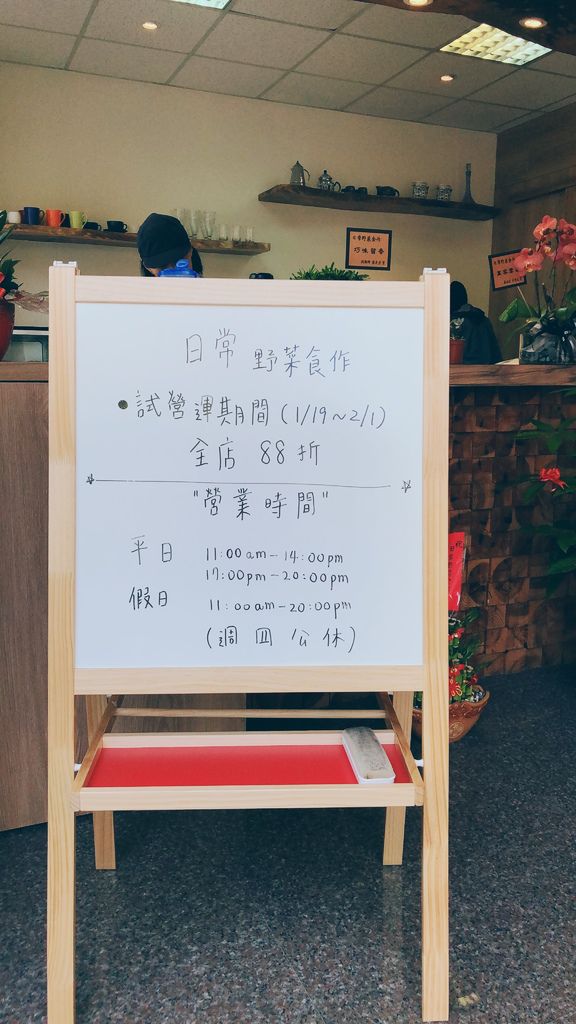 日常野菜食作
巧味留香
日常 野菜食作
•試營運期間(1/19~2/1)
全店 88折
"營業時間"
平日 11:00am-14:00pm
17:00pm-20:00pm
假日 11:00am-20:00pm
(週四公休)